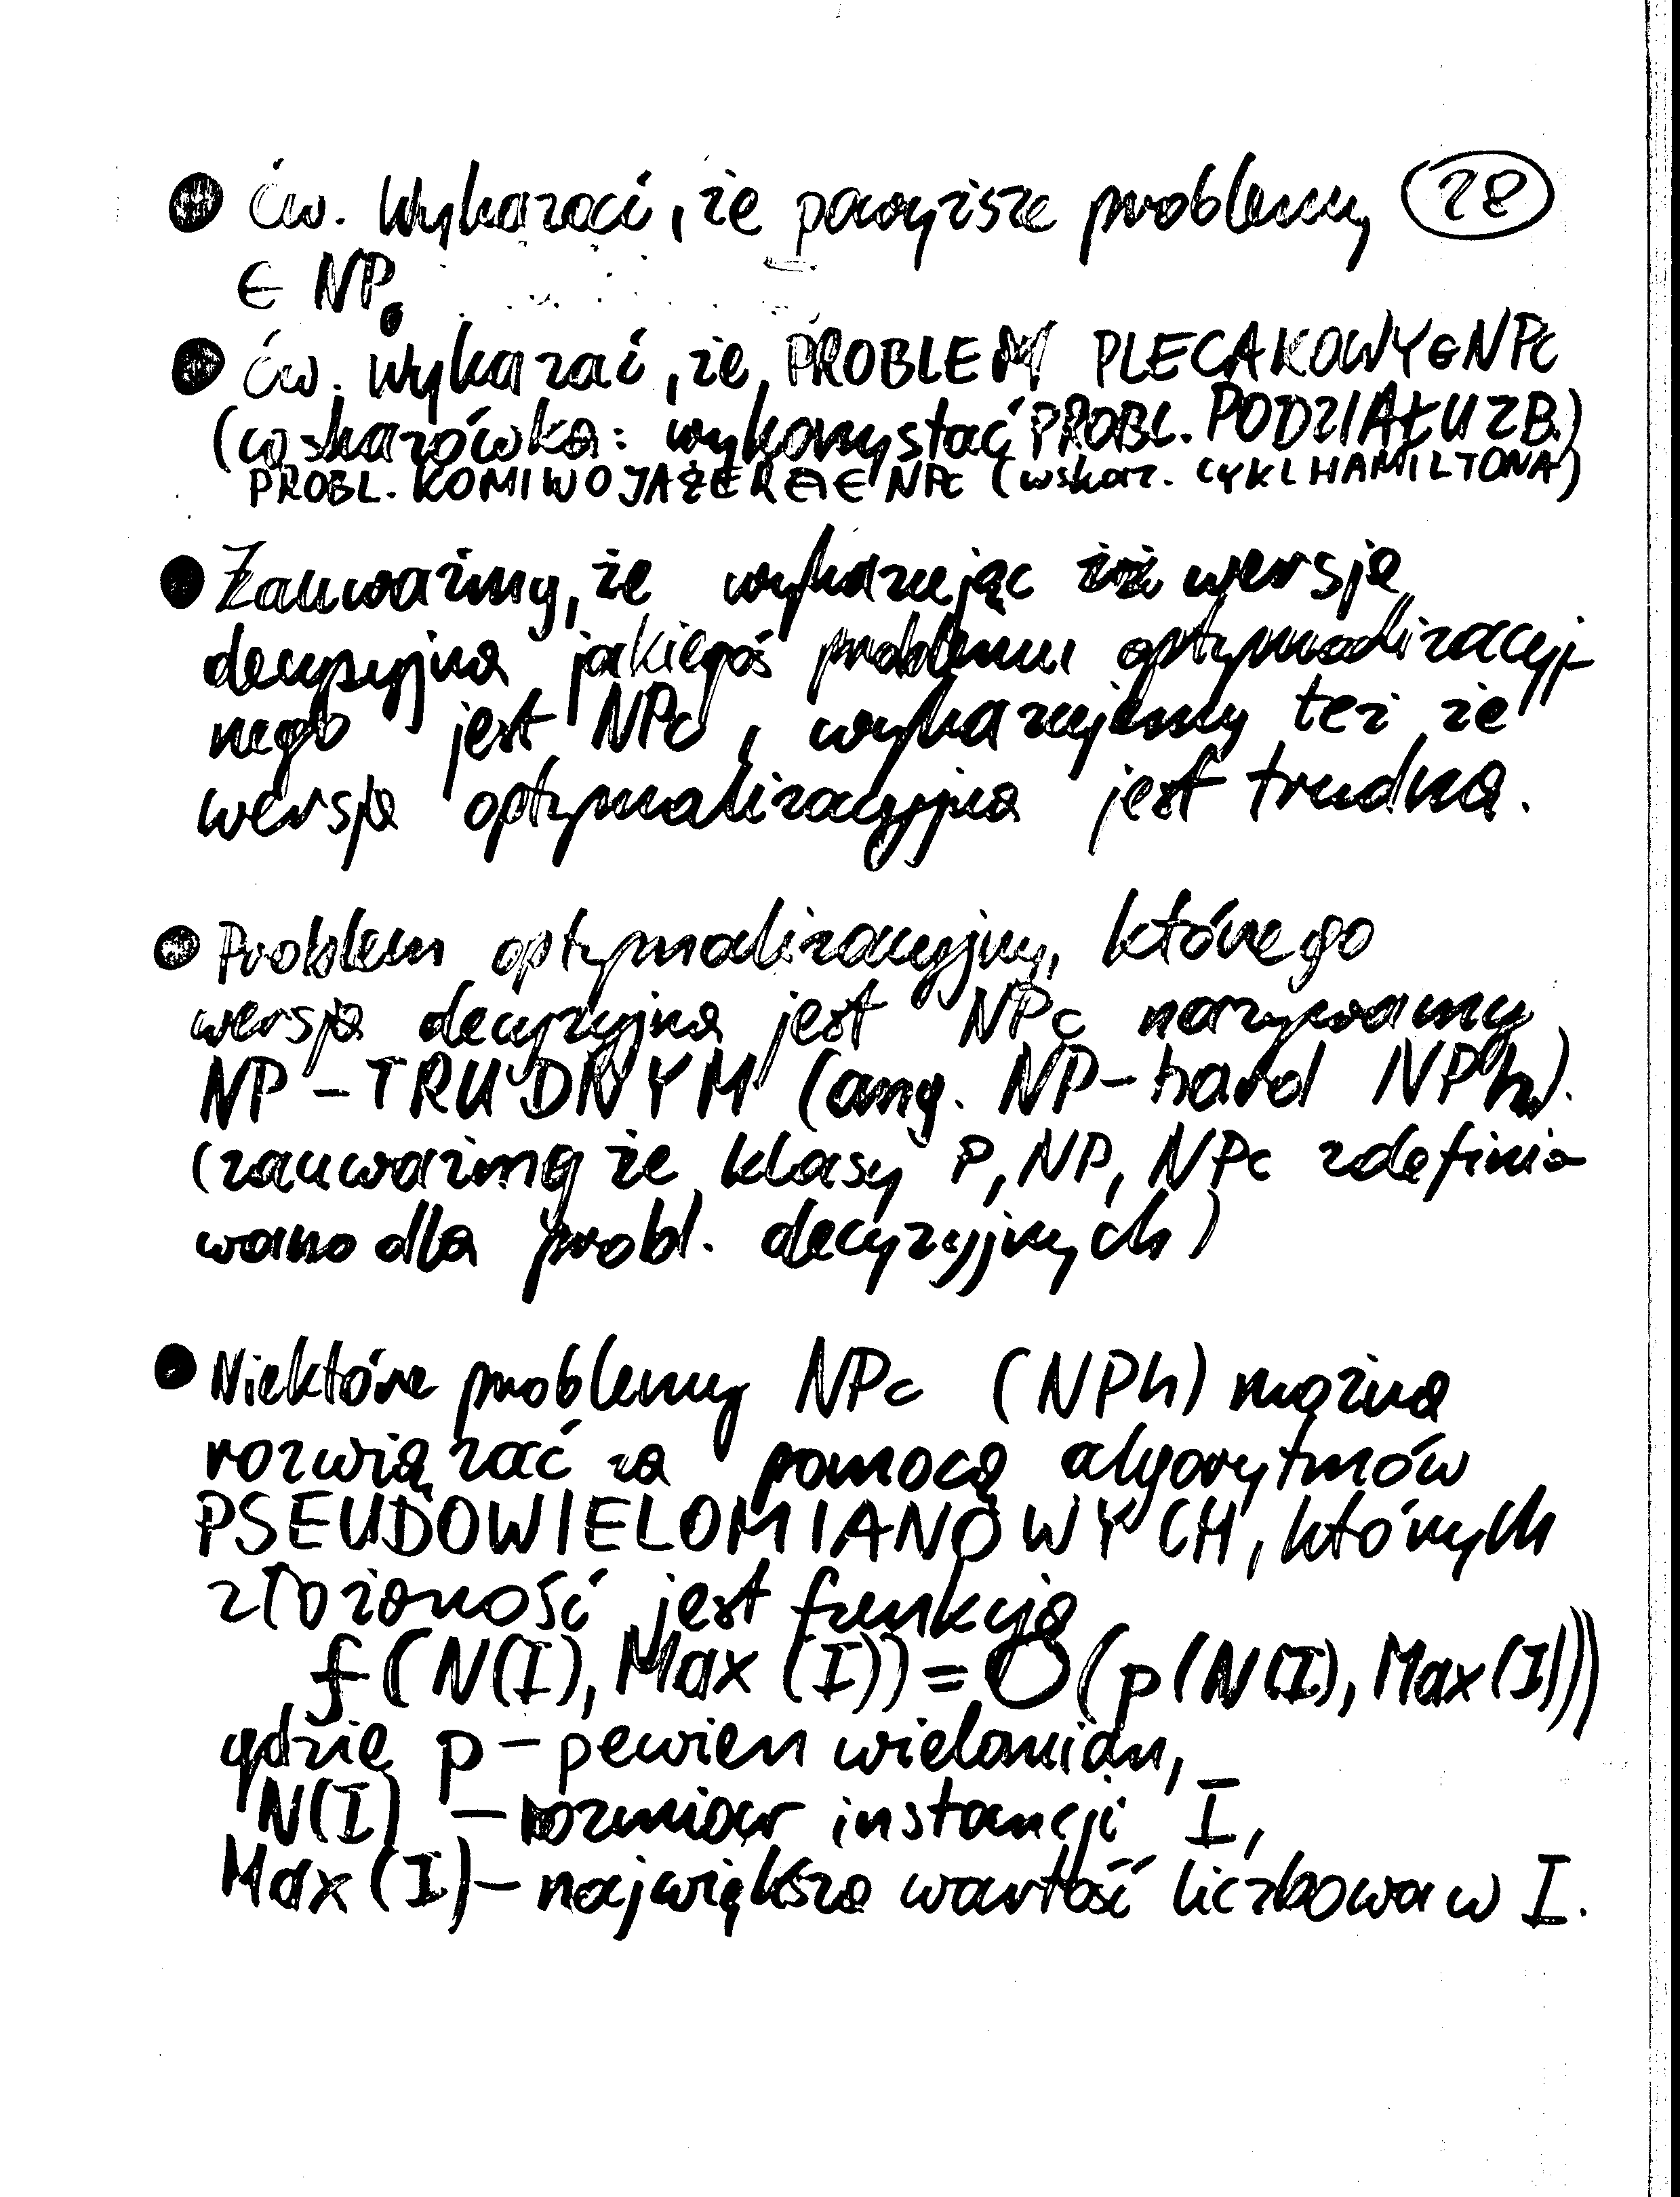 Ćw. Wykazać, że powyższe problemy 28
∈ NP.
Ćw. Wykazać, że PROBLEM PLECAKOWY ∈ NPc
(wskazówka: wykorzystać PROBL. PODZIAŁU ZB.)
PROBL. KOMIWOJAŻERA ∈ NPc (wskaz. CYKL HAMILTONA)
Zauważmy, że wykazując że wersja
decyzyjna jakiegoś problemu optymalizacyj-
nego jest NPc, wykazujemy też że
wersja optymalizacyjna jest trudna.
Problem optymalizacyjny, którego
wersja decyzyjna jest NPc nazywamy
NP-TRUDNYM (ang. NP-hard NPh).
(zauważmy że klasy P, NP, NPc zdefinio
wano dla probl. decyzyjnych)
Niektóre problemy NPc (NPh) można
rozwiązać za pomocą algorytmów
PSEUDOWIELOMIANOWYCH, których
złożoność jest funkcją
f(N(I), Max(I)) = O(p(N(I), Max(I)))
gdzie p - pewien wielomian,
N(I) - rozmiar instancji I,
Max(I) - największa wartość liczbowa w I.